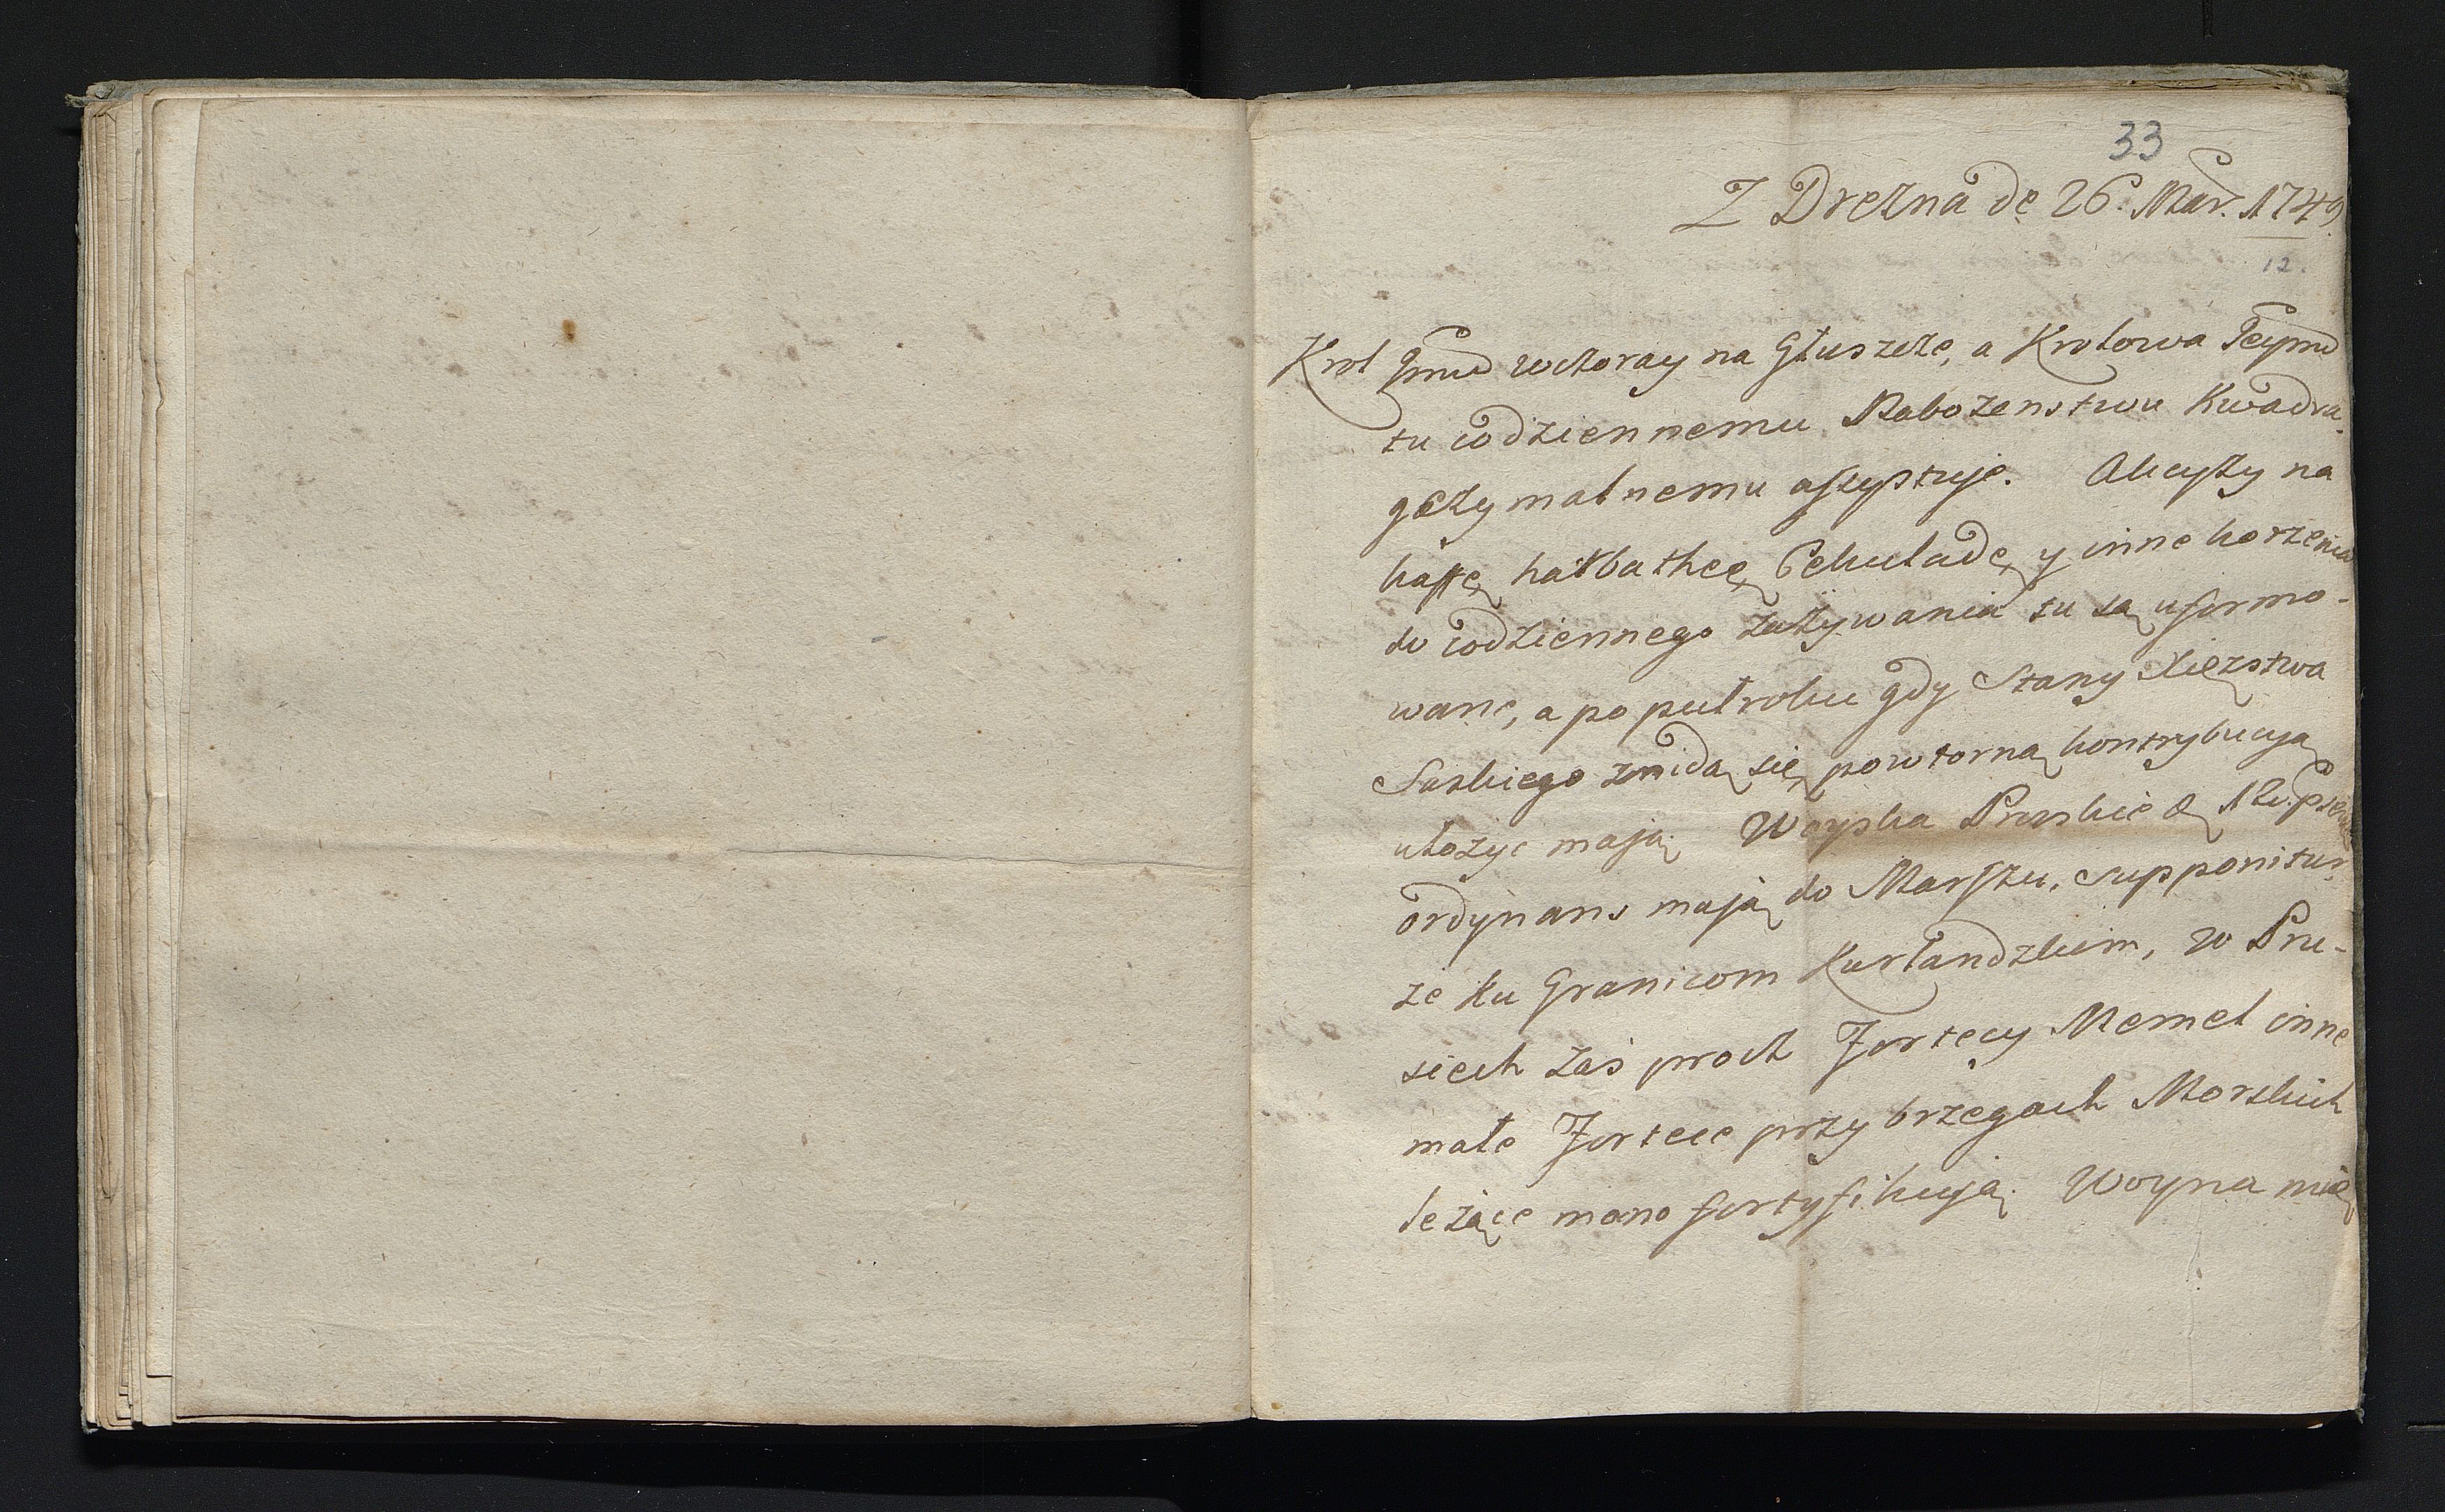 33
Z Drezna de 26. Mar. 1749
12.
Krol Jmć wczoray na Głuszcze, a Krolowa Jeymć
tu codziennemu Nabozenstwu Kwadra-
gezymalnemu assystuje. Akcyzy na
kaffę, harbathęę, Cekuladę, y inne korzenia
do codziennego zażywania tu są uformo-
wane, a po pułroku gdy Stany Xięzstwa
Saskiego znidą się, powtorną kontrybucyą
ułożyc mają. Woyska Pruskie
ordynans mają do Marszu, supponitur
ze ku Granicom Kurlandzkim, w Pru-
siech zaś procz Fortecy Memel inne
małe Fortece przy brzegach Morskich
leżące mono fortyfikują. Woyna mię